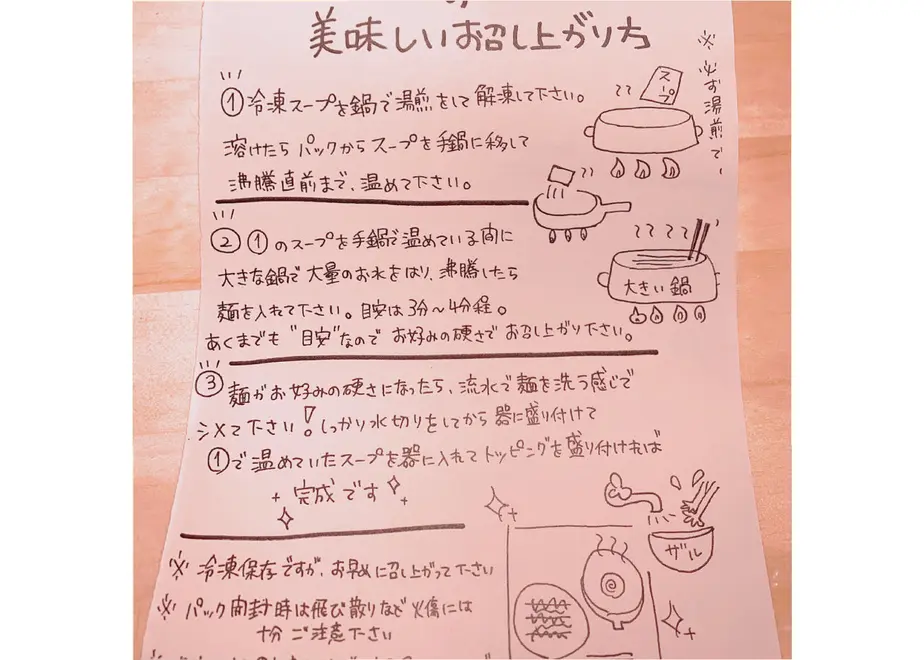 の
美味しいお召し上がり方
※必ず湯煎で、
①冷凍スープを鍋で湯煎をして解凍して下さい。
スープ
溶けたらパックからスープを手鍋に移して
沸騰直前まで、温めて下さい。
②①のスープを手鍋で温めている間に
大きな鍋で大量のお水をはり、沸騰したら
大きい鍋
麺を入れて下さい。目安は3分〜4分程。
あくまでも"目安"なのでお好みの硬さでお召し上がり下さい。
③麺がお好みの硬さになったら、流水で麺を洗う感じで
シメて下さい!しっかり水切りをしてから器に盛り付けて
①で温めていたスープを器に入れてトッピングを盛り付ければ
完成です
ザル
※冷凍保存ですが、お早めに召し上がって下さい
※パック開封時は飛び散りなど火傷には
十分ご注意下さい